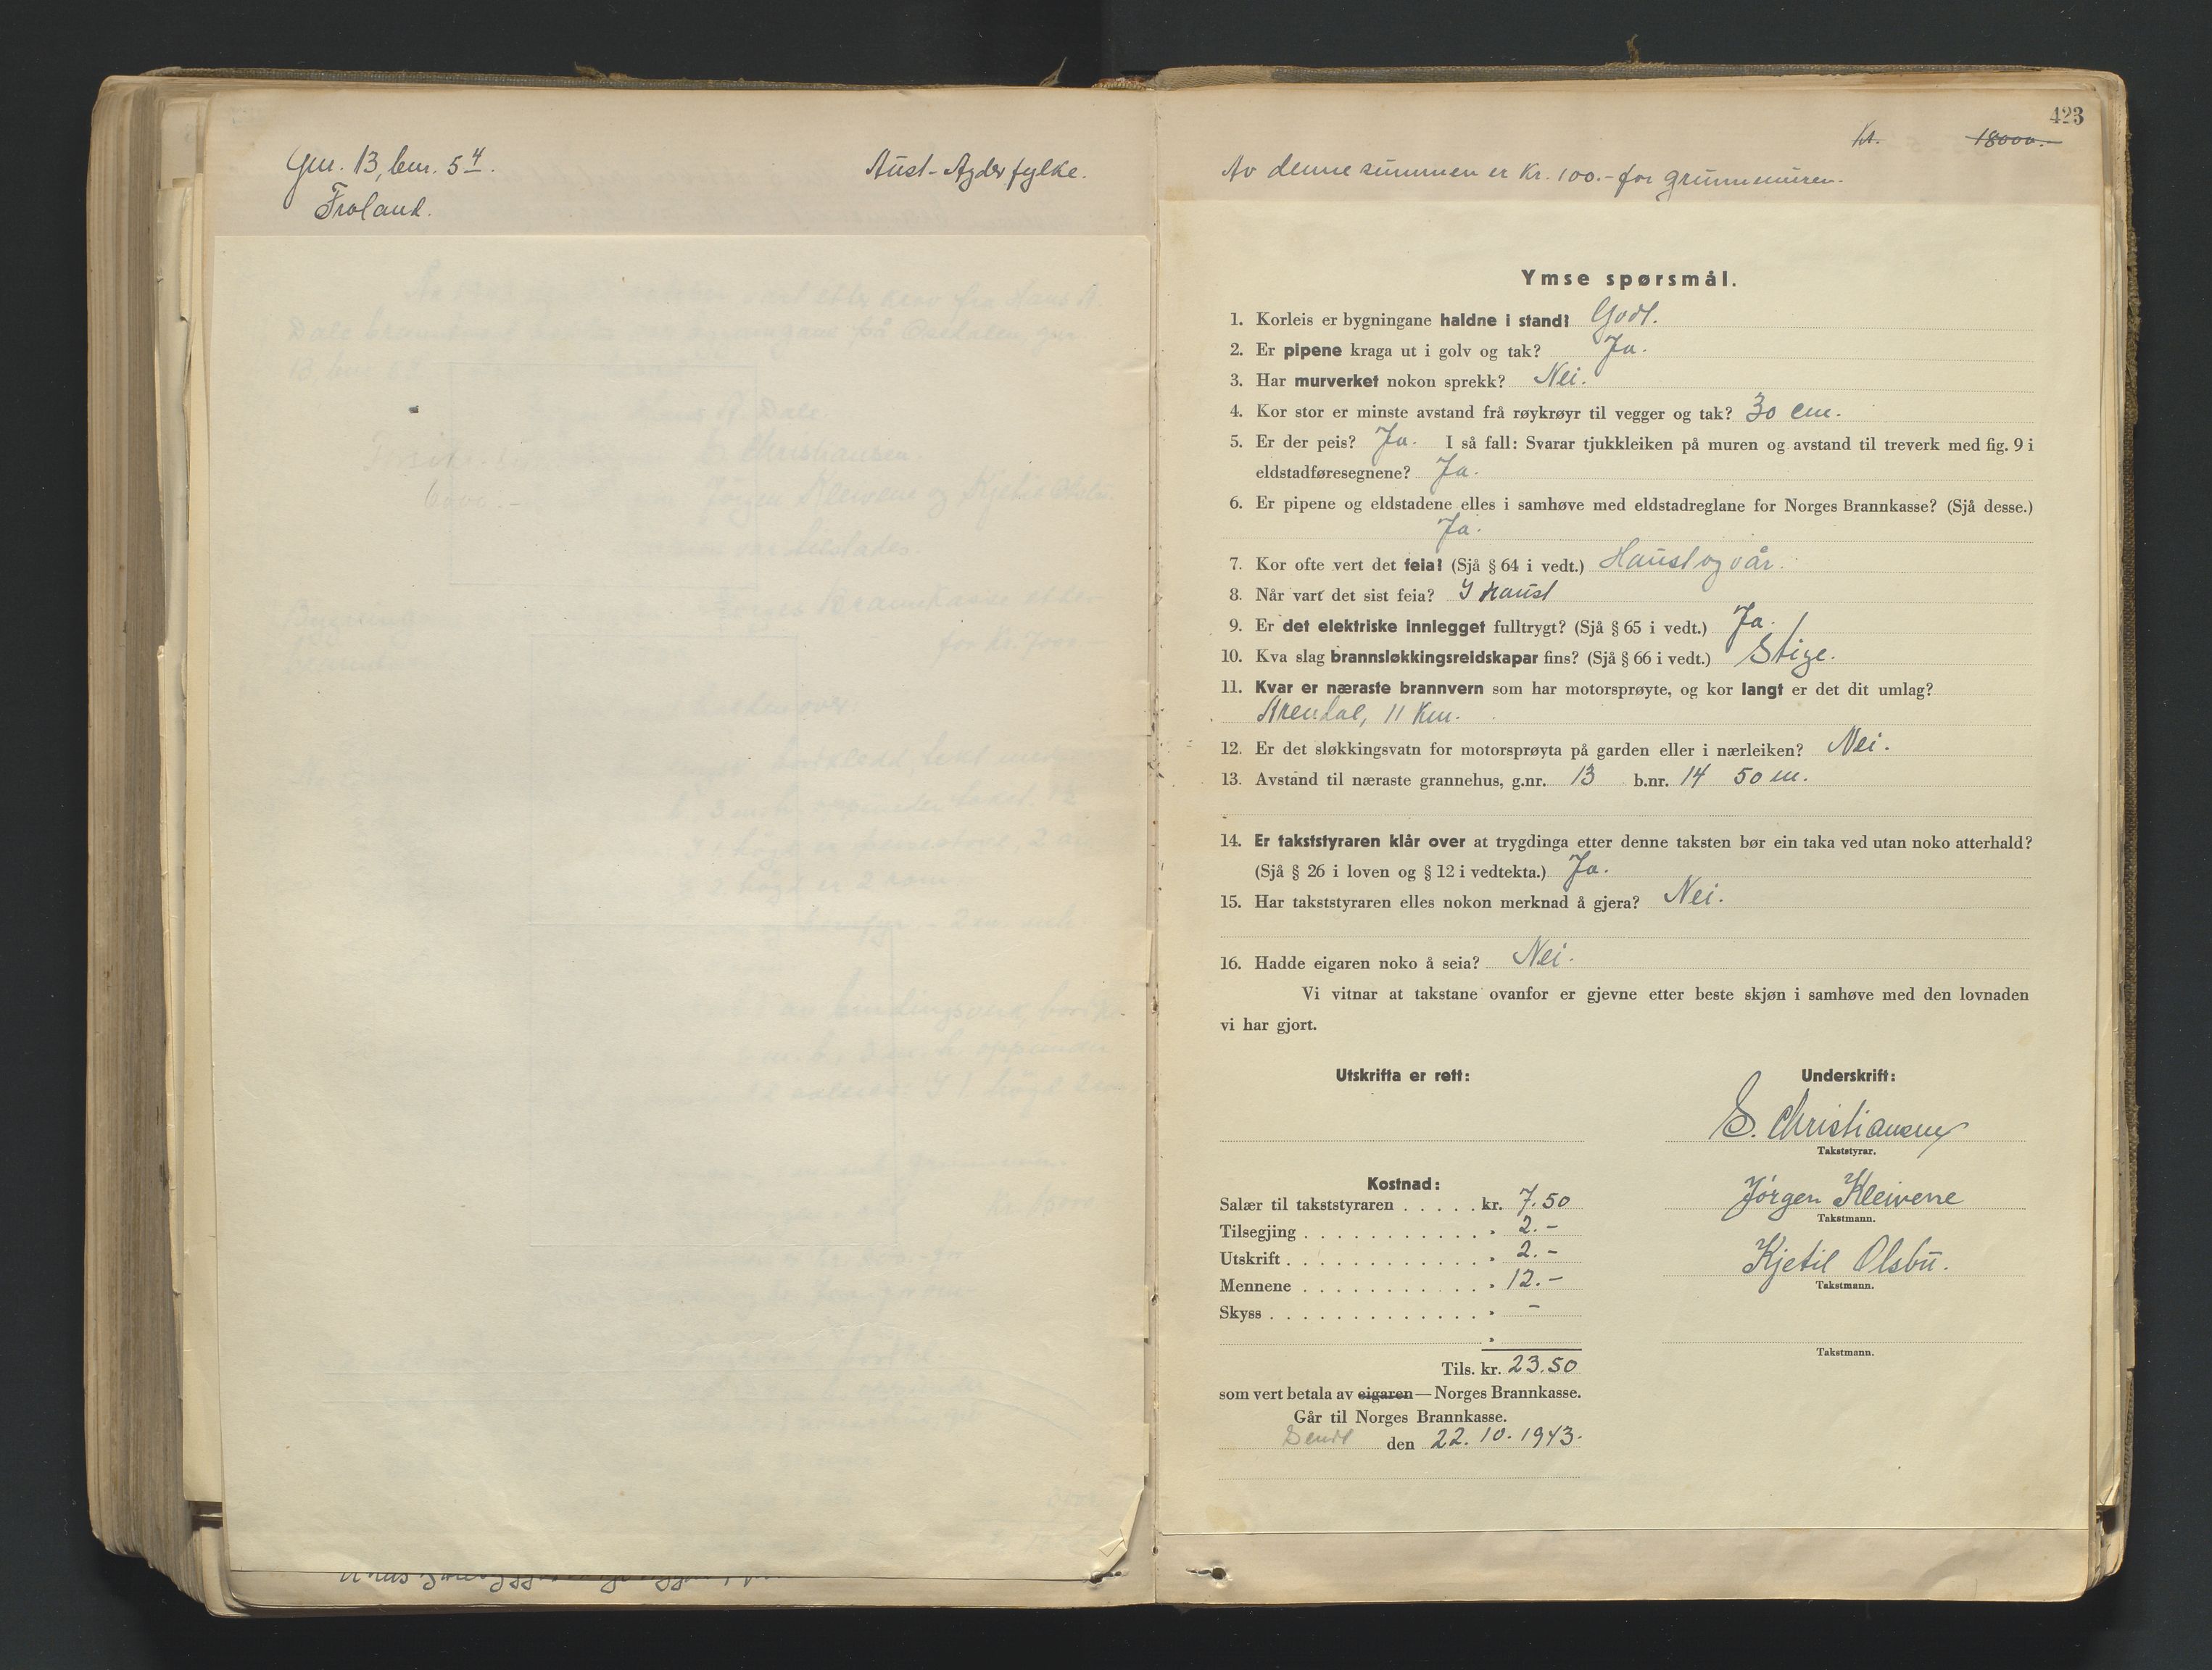 Gnr. 13, bnr. 54.
Froland.
Aust-Agder fylke.
423
Kr. 18000.-
Av denne summen er Kr. 100.- for grunnmuren.
Ymse spørsmål.
1. Korleis er bygningane haldne i stand? Godt.
2. Er pipene kraga ut i golv og tak? Ja.
3. Har murverket nokon sprekk? Nei.
4. Kor stor er minste avstand frå røykrøyr til vegger og tak? 30 cm.
5. Er der peis? Ja. I så fall: Svarar tjukkleiken på muren og avstand til treverk med fig. 9 i
eldstadføresegnene? Ja.
6. Er pipene og eldstadene elles i samhøve med eldstadreglane for Norges Brannkasse? (Sjå desse.)
Ja.
7. Kor ofte vert det feia? (Sjå § 64 i vedt.) Haust og vår.
8. Når vart det sist feia? I haust
9. Er det elektriske innlegget fulltrygt? (Sjå § 65 i vedt.) Ja.
10. Kva slag brannsløkkingsreidskapar fins? (Sjå § 66 i vedt.) Stige.
11. Kvar er næraste brannvern som har motorsprøyte, og kor langt er det dit umlag?
Arendal, 11 Km.
12. Er det sløkkingsvatn for motorsprøyta på garden eller i nærleiken? Nei.
13. Avstand til næraste grannehus, g.nr. 13 b.nr. 14 50 m.
14. Er takststyraren klår over at trygdinga etter denne taksten bør ein taka ved utan noko atterhald?
(Sjå § 26 i loven og § 12 i vedtekta.) Ja.
15. Har takststyraren elles nokon merknad å gjera? Nei.
16. Hadde eigaren noko å seia? Nei.
Vi vitnar at takstane ovanfor er gjevne etter beste skjøn i samhøve med den lovnaden
vi har gjort.
Utskrifta er rett:
Underskrift:
S. Christiansen
Takststyrar.
Jørgen Kleivene
Takstmann.
Kjetil Olsbu.
Takstmann.
Takstmann.
Kostnad:
Salær til takststyraren . . . . . kr. 7.50
Tilsegjing . . . . . . . . . . . . " 2.-
Utskrift . . . . . . . . . . . . . " 2.-
Mennene . . . . . . . . . . . . " 12.-
Skyss . . . . . . . . . . . . . . " -
"
Tils. kr. 23.50
som vert betala av eigaren — Norges Brannkasse.
Går til Norges Brannkasse.
Sendt den 22. 10. 1943.